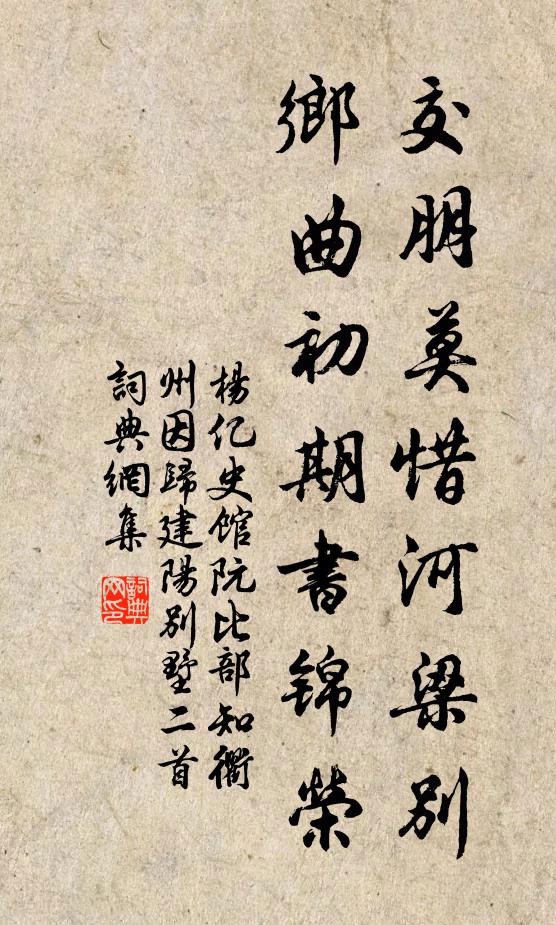 交朋莫惜河梁別
鄉曲初期書錦榮
楊億史館阮比部知衢
州因歸建陽別墅二首
詞典網集
詞典網印